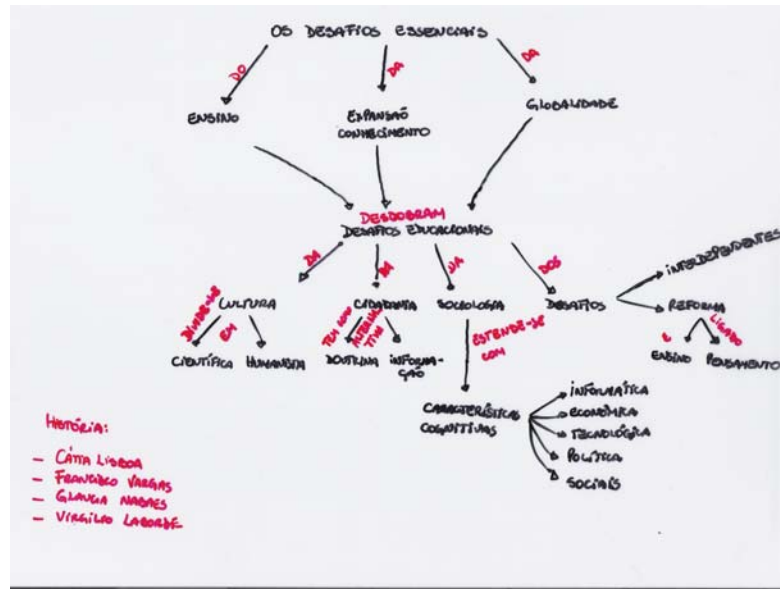 OS DESAFIOS ESSENCIAIS
DO
DA
DA
ENSINO
EXPANSAÕ
CONHECIMENTO
GLOBALIDADE
DESDOBRAM
DESAFIOS EDUCACIONAIS
DA
DA
DA
DOS
INTERDEPENDENTES
CULTURA
CIDADANIA
SOCIOLOGIA
DESAFIOS
REFORMA
DIVIDE-SE
EM
TEM
ESTENDE-SE
COM
E
LIGADO
CIENTÍFICA
HUMANISTA
DOUTRINA
INFORMA-
ÇÃO
ENSINO
PENSAMENTO
CARACTERÍSTICAS
COGNITIVAS
INFORMÁTICA
ECONÔMICA
TECNOLÓGICA
POLÍTICA
SOCIAIS
HISTÓRIA:
- CÁTIA LISBOA
- FRANCISCO VARGAS
- GLAUCIA NABAES
- VIRGILIO LABORDE